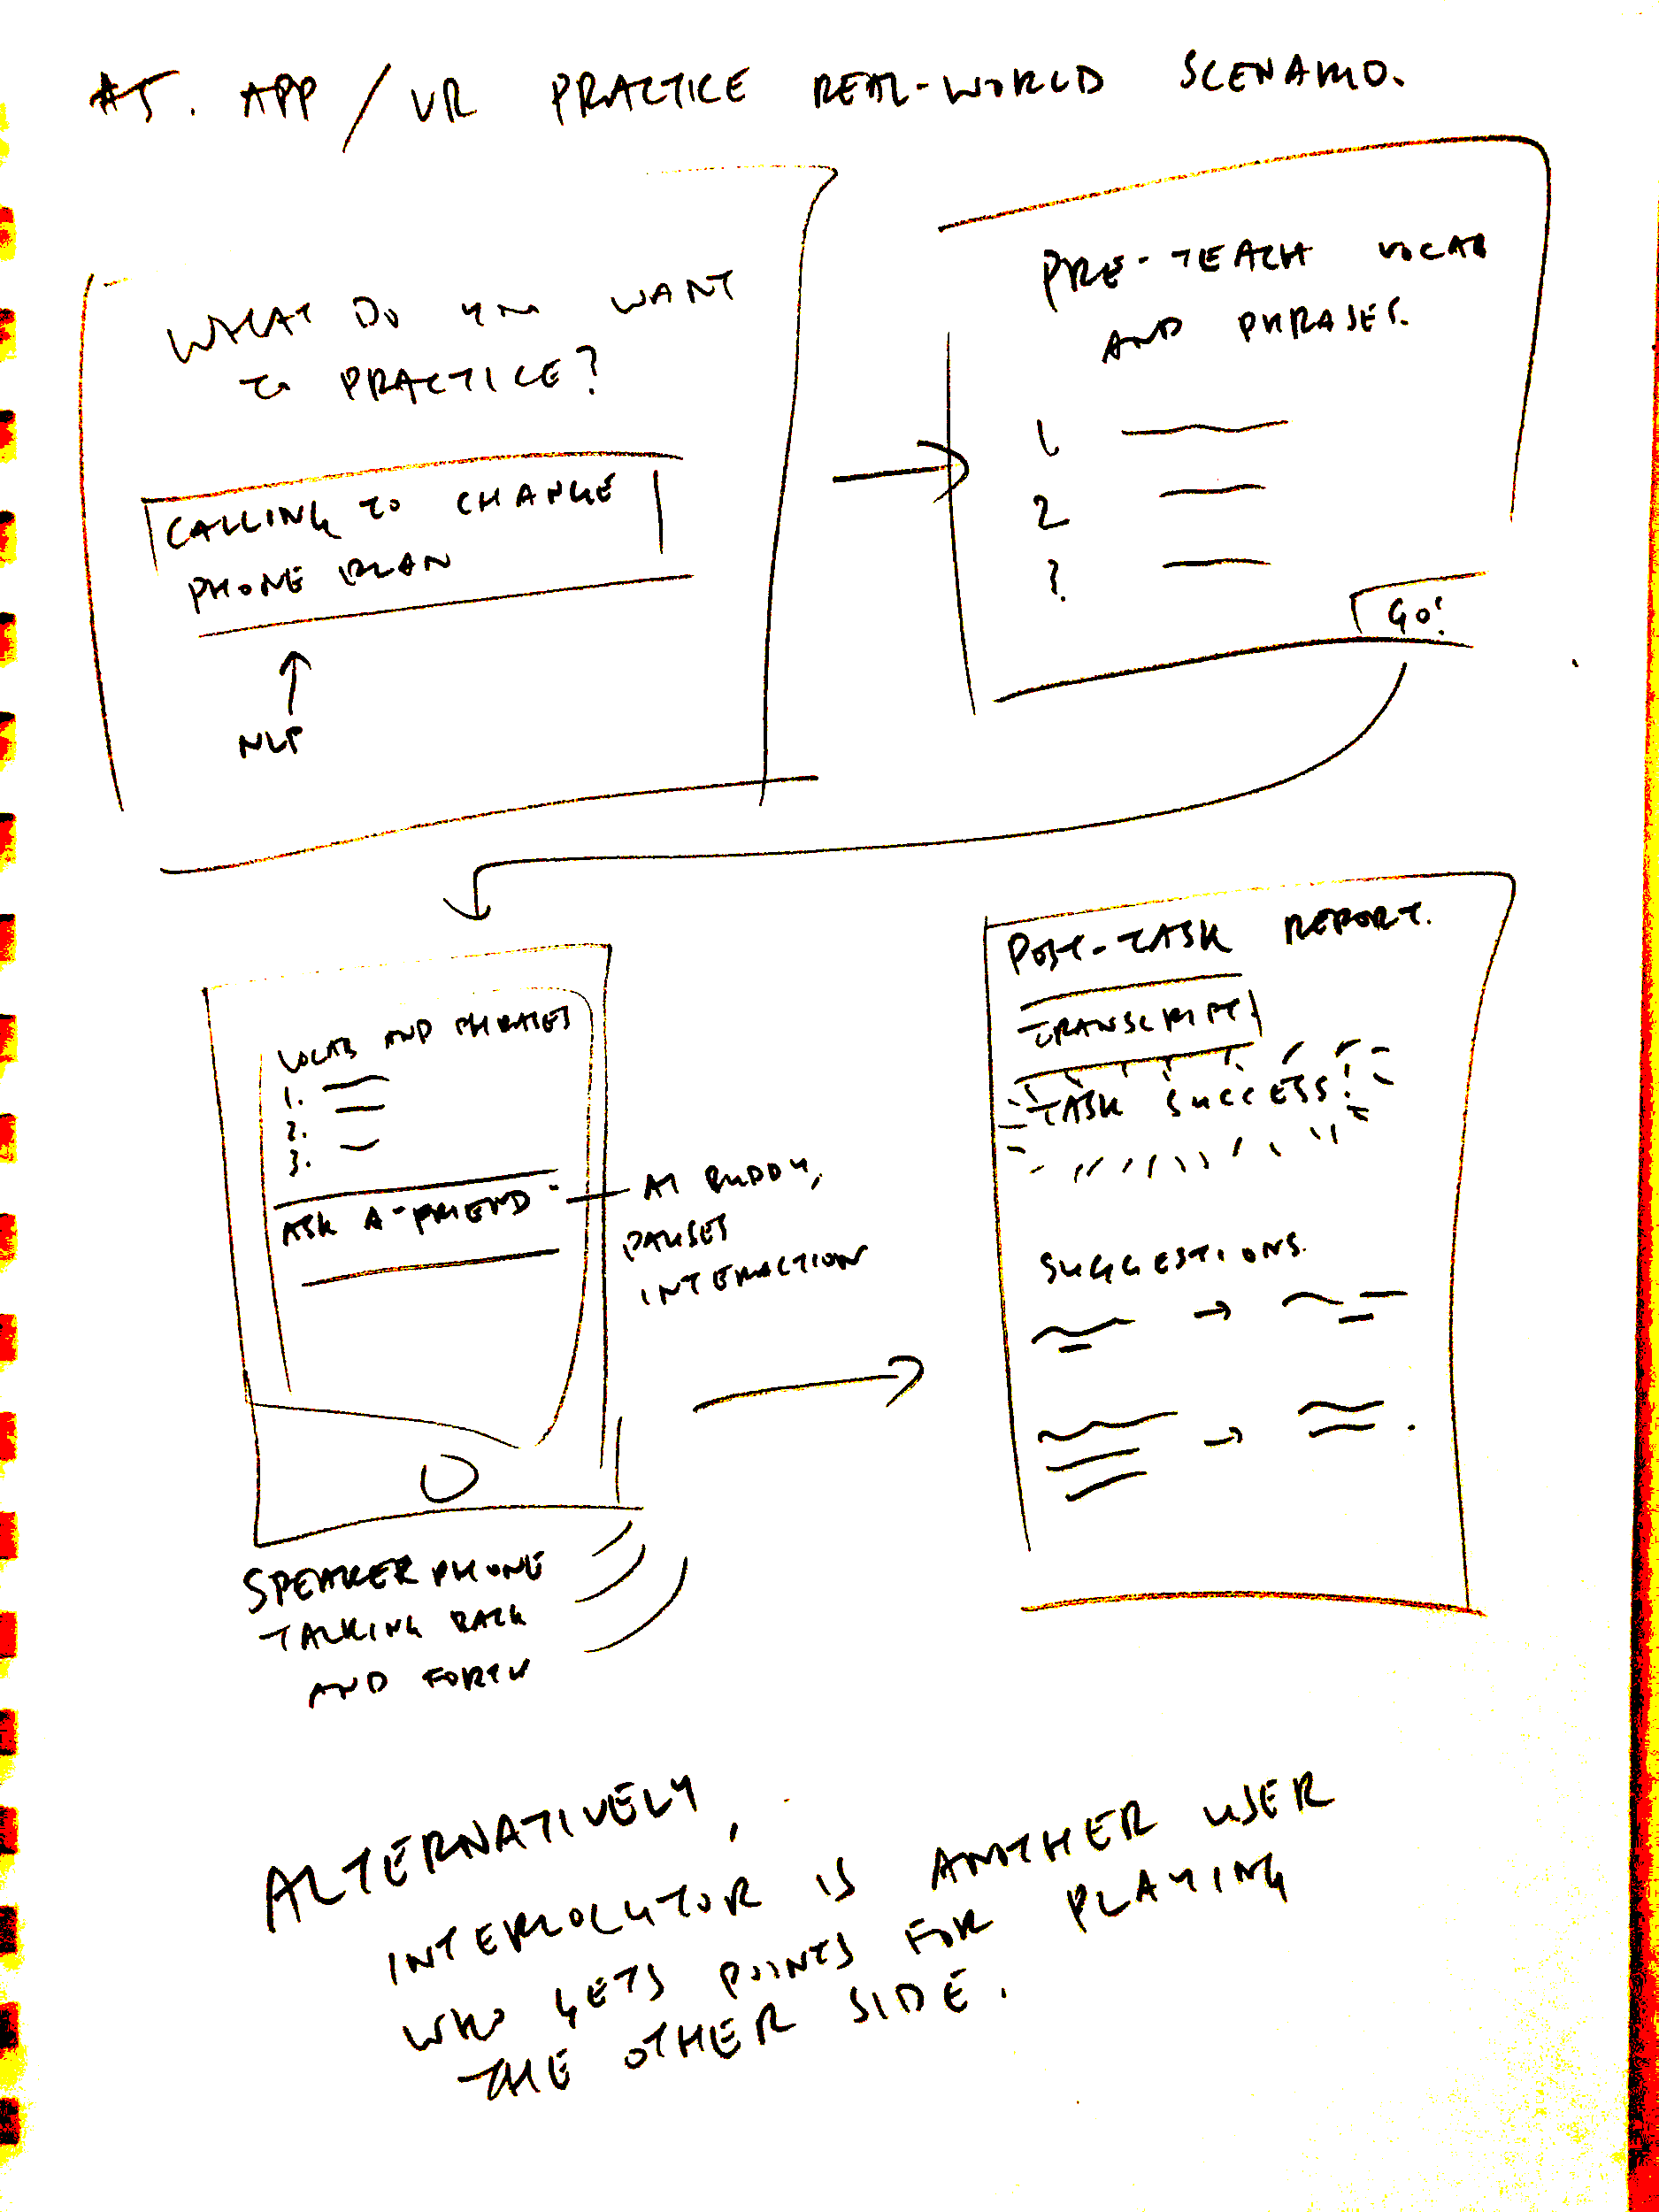 #5. APP / VR PRACTICE REAL-WORLD SCENARIO.
WHAT DO YOU WANT
TO PRACTICE?
CALLING TO CHANGE
PHONE PLAN
NLP
PRE-TEACH VOCAB
AND PHRASES.
1
2
3
GO!
VOCAB AND PHRASES
1.
2.
3.
ASK A-FRIEND
AI BUDDY,
PAUSES
INTERACTION
SPEAKERPHONE
TALKING BACK
AND FORTH
POST-TASK REPORT.
TRANSCRIPT
TASK SUCCESS!
SUGGESTIONS.
ALTERNATIVELY,
INTERLOCUTOR IS ANOTHER USER
WHO GETS POINTS FOR PLAYING
THE OTHER SIDE.